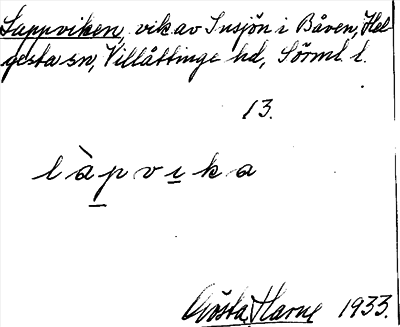 Lappviken, vik av Insjön i Båven, Hel-
gesta sn, Villåttinge hd, Sörml. l.
13.
làpvika
Gösta Harne 1933.